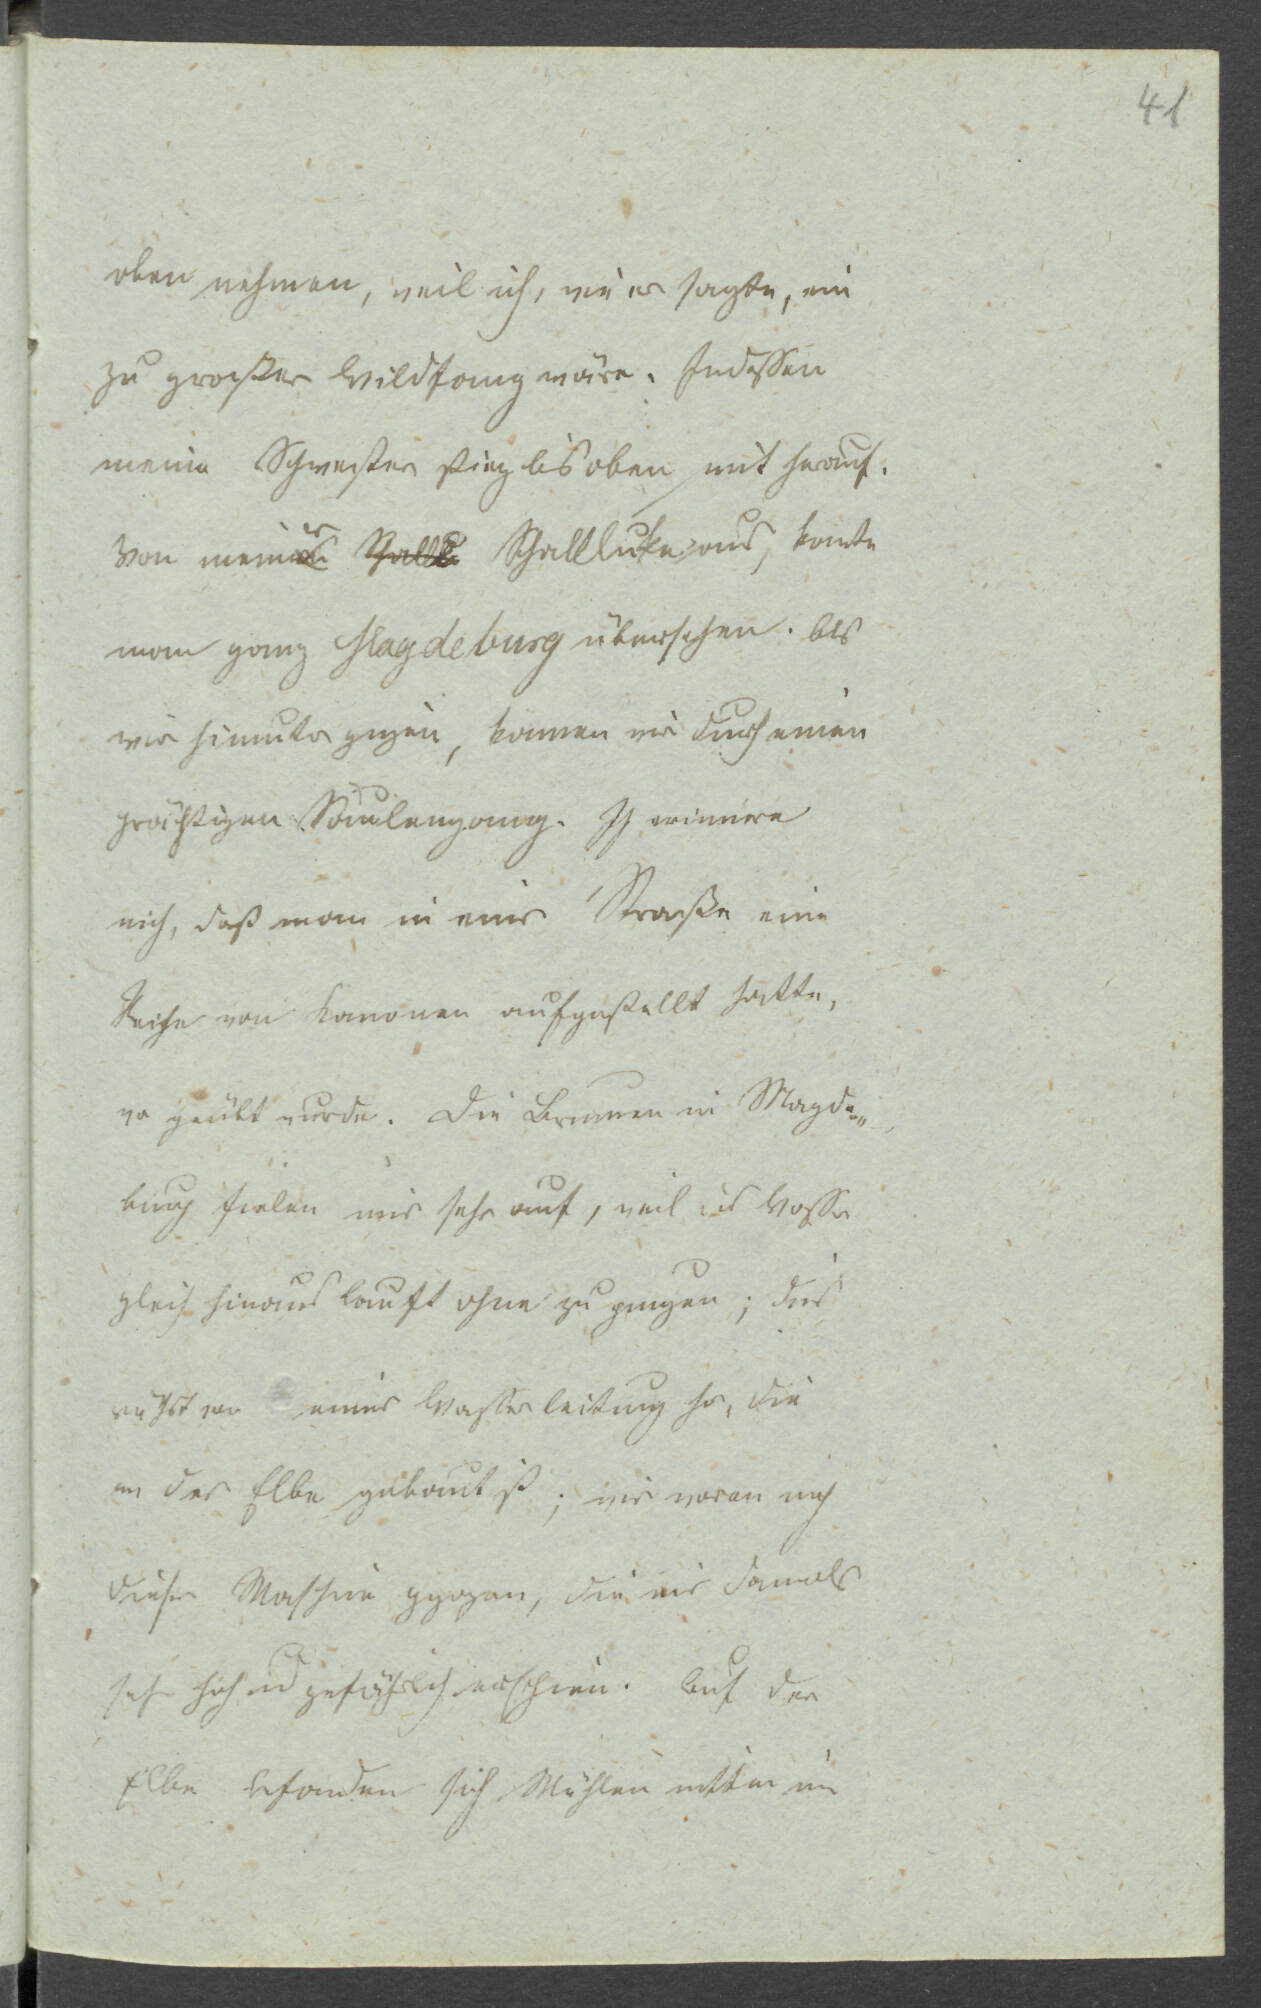 41
oben nehmen, weil ich, wie er sagte, ein
zu großer Wildfang wäre. Indessen
meine Schwester stieg bis oben mit herauf.
Von meiner Schallluke aus, konte
man ganz Magdeburg übersehen. Als
wir hinuter gigen, kamen wir durch einen
prächtigen Säulengang. Ich erinnere
mich, daß man in einer Straße eine
Reihe von Kanonen aufgestellt hatte,
wo geübt wurde. Die Brunnen in Magde„
burg fielen mir sehr auf, weil das Wasser
gleich hinaus lauft ohne zu pumpen; dies
rührt von einer Wasserleitung her, die
an der Elbe gebaut ist; wir waren nach
dieser Maschine gegagen, die mir damals
sehr hoh und gefährlich erschien. Auf der
Elbe befanden sich Mühlen mitten im